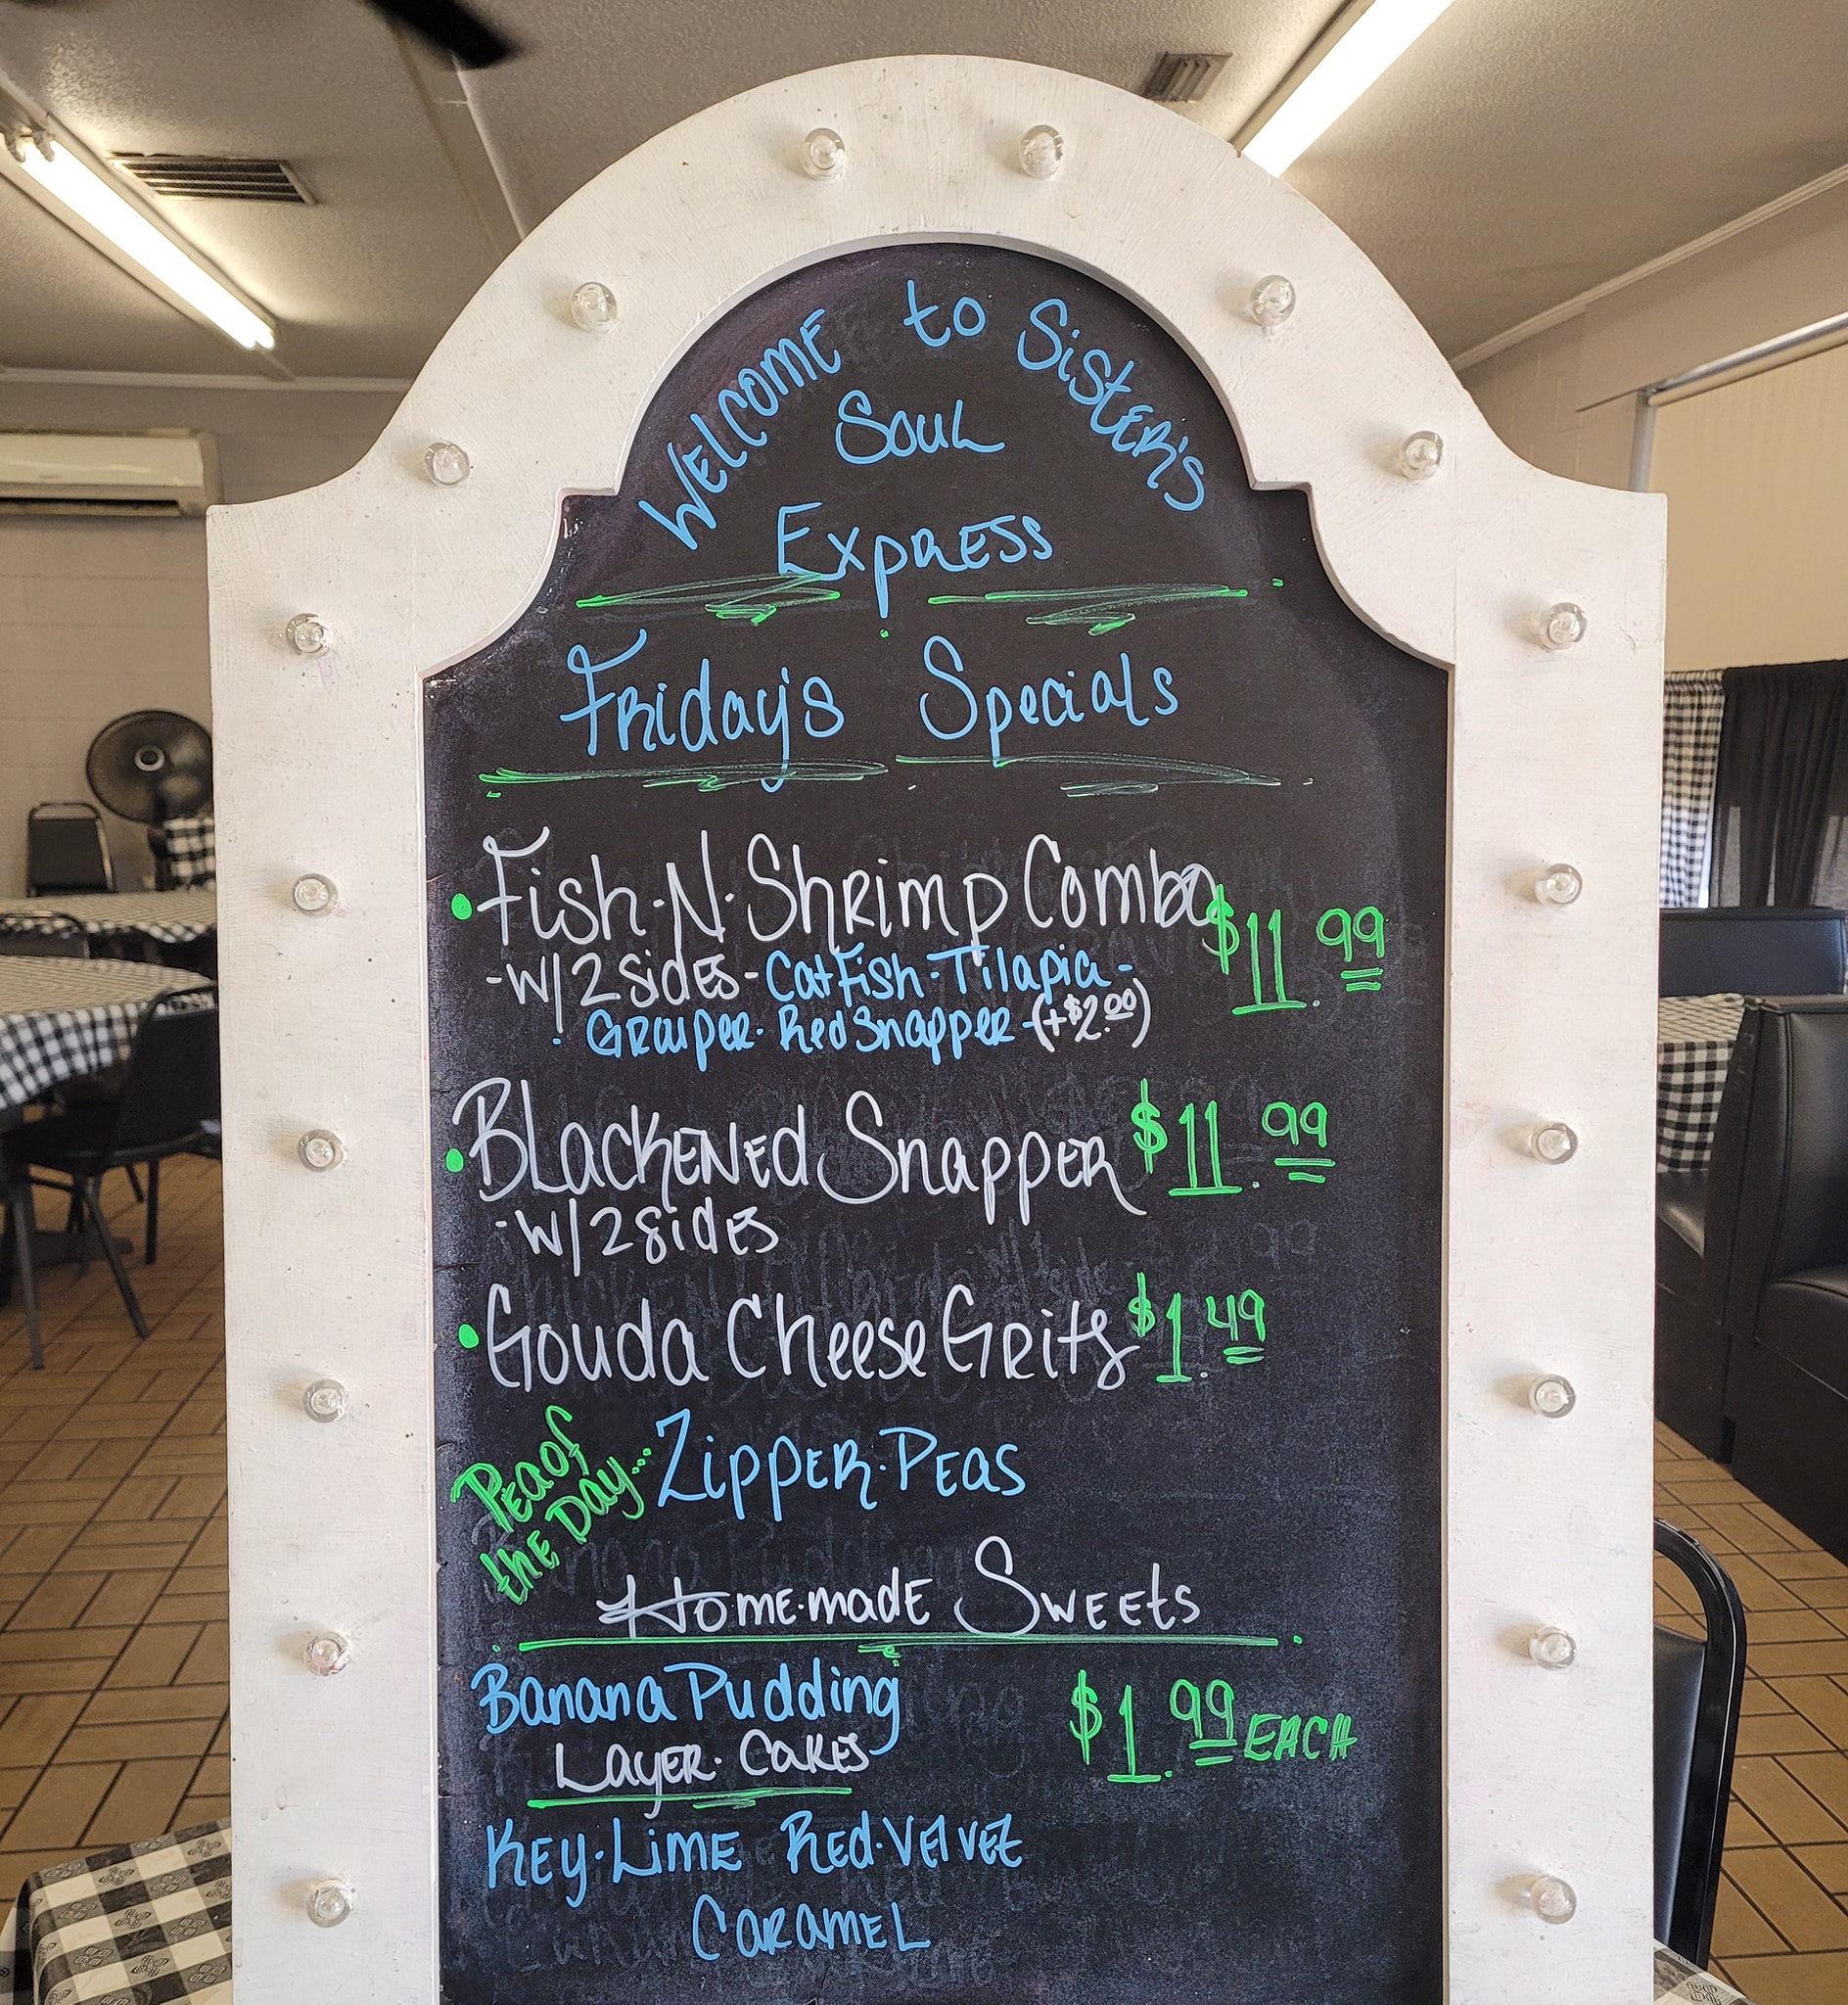 WELCOME to SistER'S
SouL
ExpRESS
FRiday's Specials
Fish-N-ShRimp Combo $11.99
-W/2 SidES-CatFish-Tilapia-
GRouper-RedSnapper-(+$2.00)
BLacKENEd SnappER $11.99
-W/2 SidES
Gouda CheeseGRits $1.49
PEa of
thE Day... ZippER-PEas
HomE-madE SwEEts
Banana Pudding $1.99 EACH
LayER-CaKES
KEy-LimE REd-VElvEt
CaRamEL